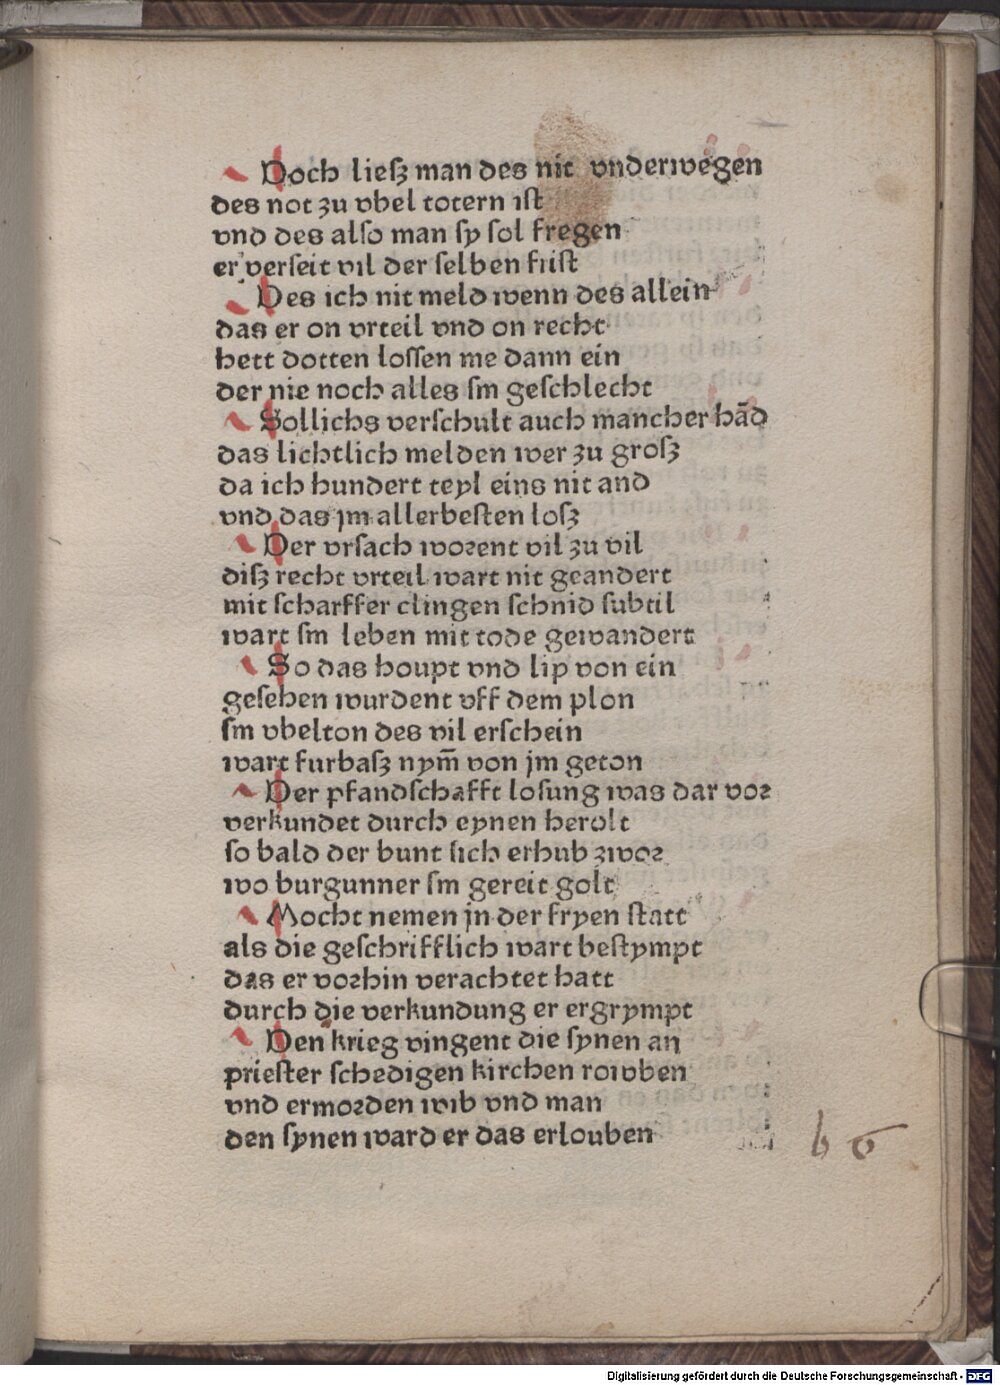 Doch liesz man des nit vnderwegen
des not zu vbel totern ist
vnd des also man sy sol fregen
er verseit vil der selben frist
Des ich nit meld wenn des allein
das er on vrteil vnd on recht
hett dotten lossen me dann ein
der nie noch alles sin geschlecht
Sollichs verschult auch mancher hād
das lichtlich melden wer zu grosz
da ich hundert teyl eins nit and
vnd das jm allerbesten losz
Der vrsach worent vil zu vil
disz recht vrteil wart nit geandert
mit scharffer clingen schnid subtil
wart sin leben mit tode gewandert
So das houpt vnd lip von ein
gesehen wurdent vff dem plon
sin vbelton des vil erschein
wart furbasz nym̄ von jm geton
Der pfandschafft losung was dar vor
verkundet durch eynen herolt
so bald der bunt sich erhub zwor
wo burgunner sin gereit golt
Mocht nemen jn der fryen statt
als die geschrifflich wart bestympt
das er vorhin verachtet hatt
durch die verkundung er ergrympt
Den krieg vingent die synen an
priester schedigen kirchen rowben
vnd ermorden wib vnd man
den synen ward er das erlouben
b 6
Digitalisierung gefördert durch die Deutsche Forschungsgemeinschaft - DFG